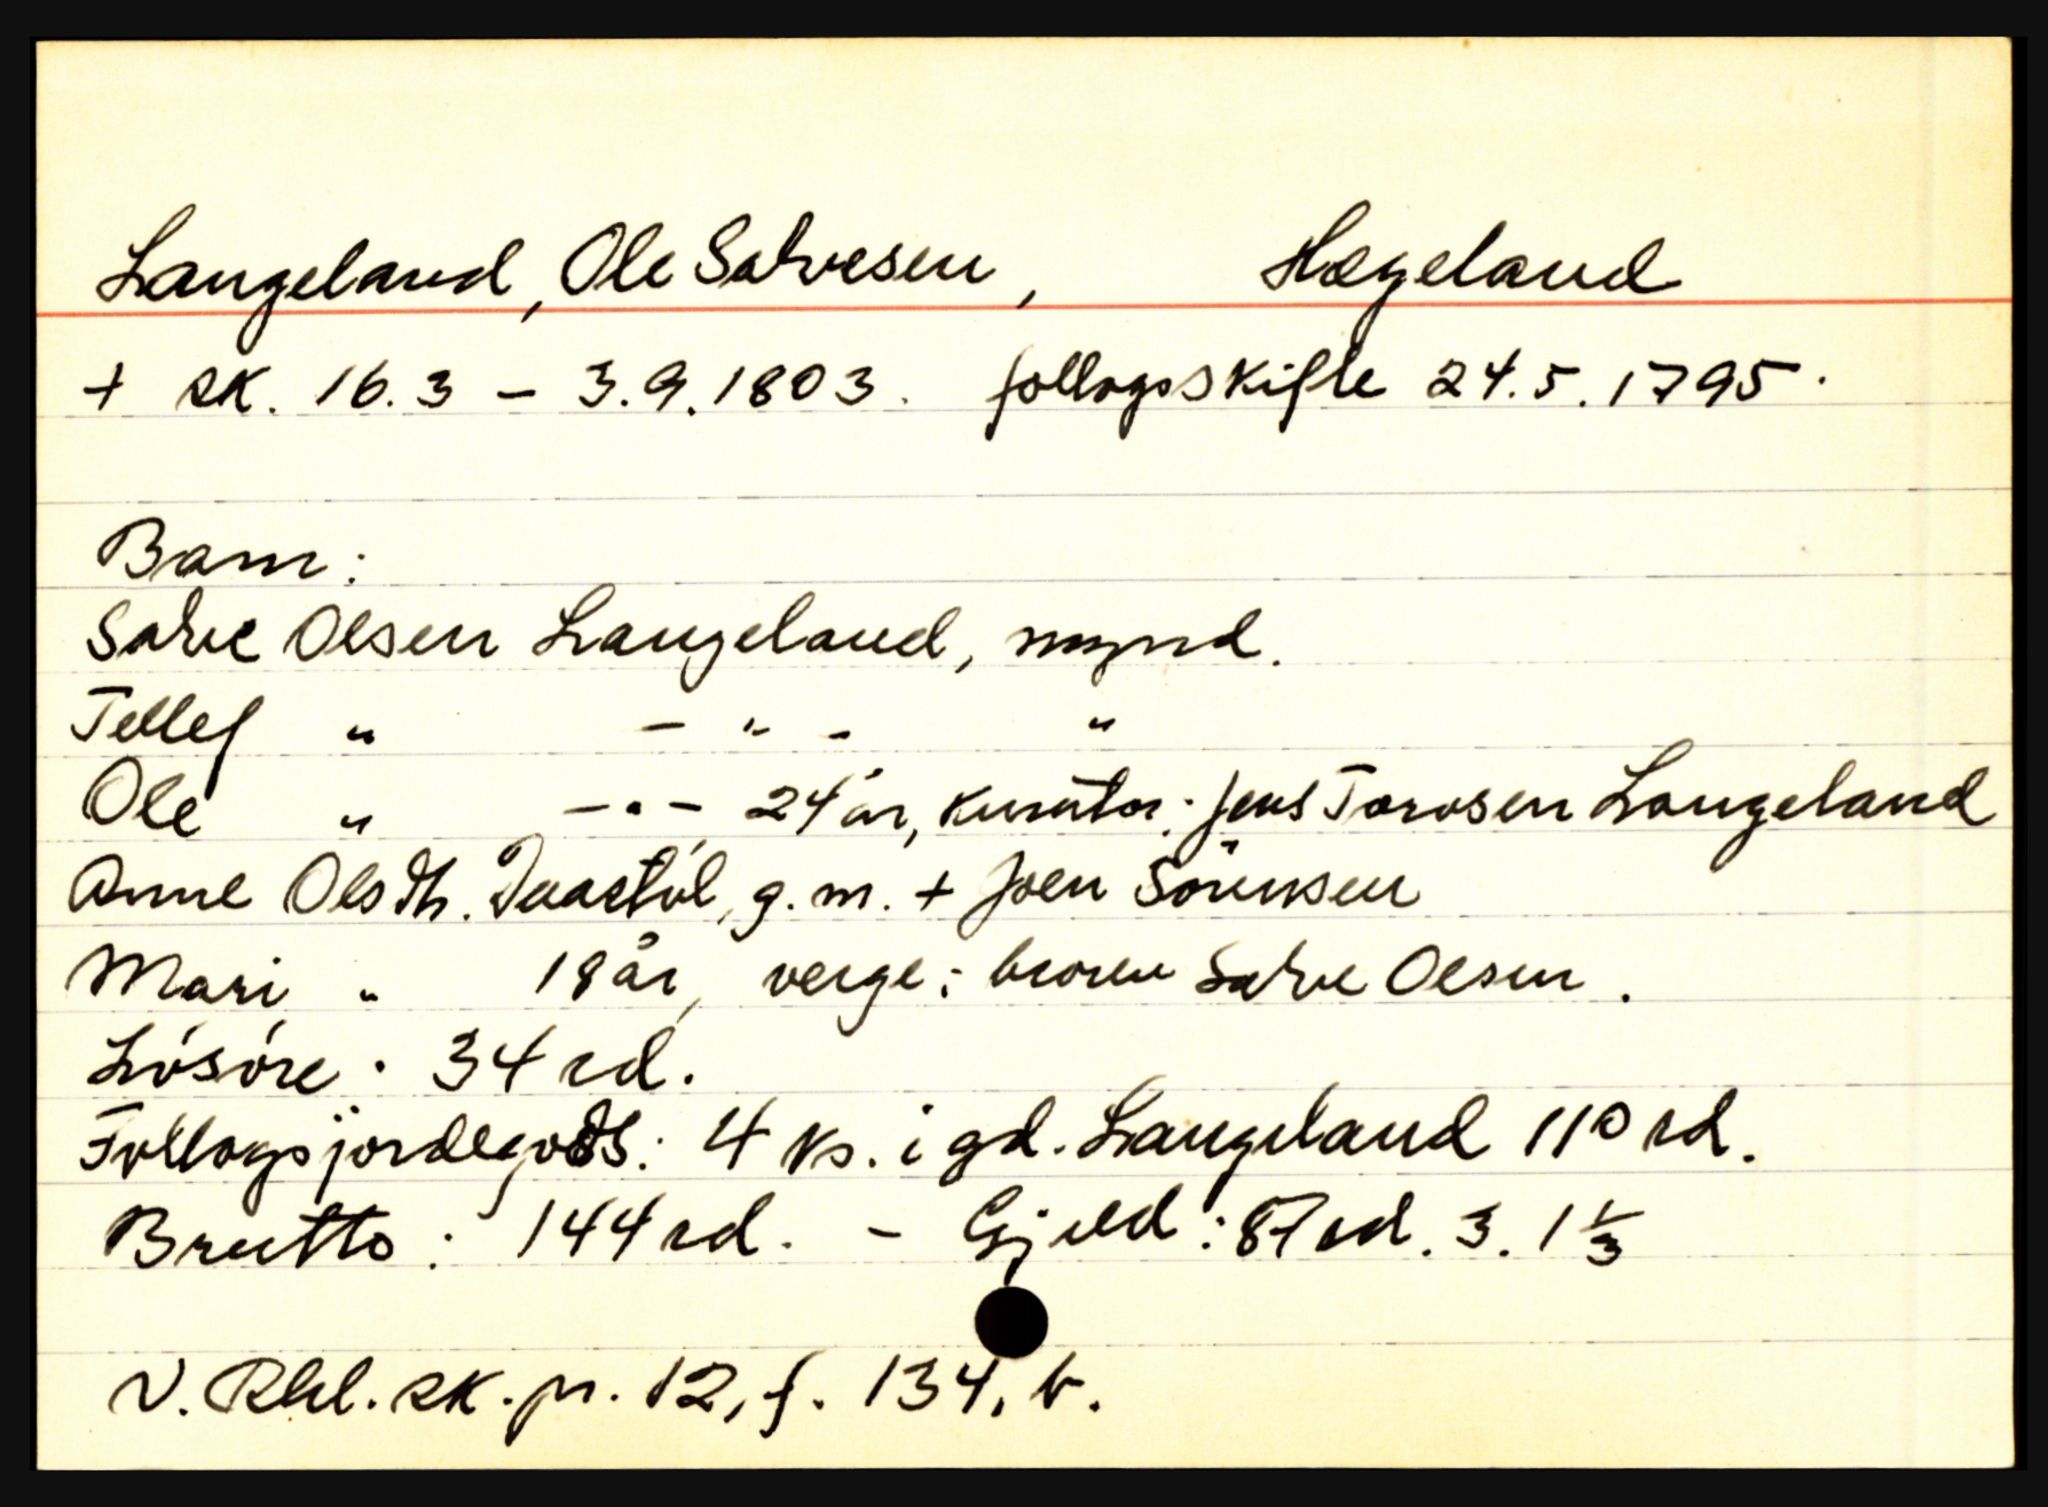 Langeland, Ole Salvesen, Hægeland
+ sk. 16.3 - 3.9.1803. follogsskifte 24.5.1795.
Barn:
Salve Olsen Langeland, mynd.
Tellef " - " - "
Ole " - " - 24 år, kurator: Jens Tarosen Langeland
Anne Olsdtr. g.m. + Joen Sörensen
Mari " 18 år, verge: broren Salve Olsen.
Lösöre: 34 rd.
Follogsjordegods: 4 ks. i gd. Langeland 110 rd.
Brutto: 144 rd. - Gjeld: 87 rd. 3. 1 1/3
V. Rbl. sk. pr. 12, f. 134, b.